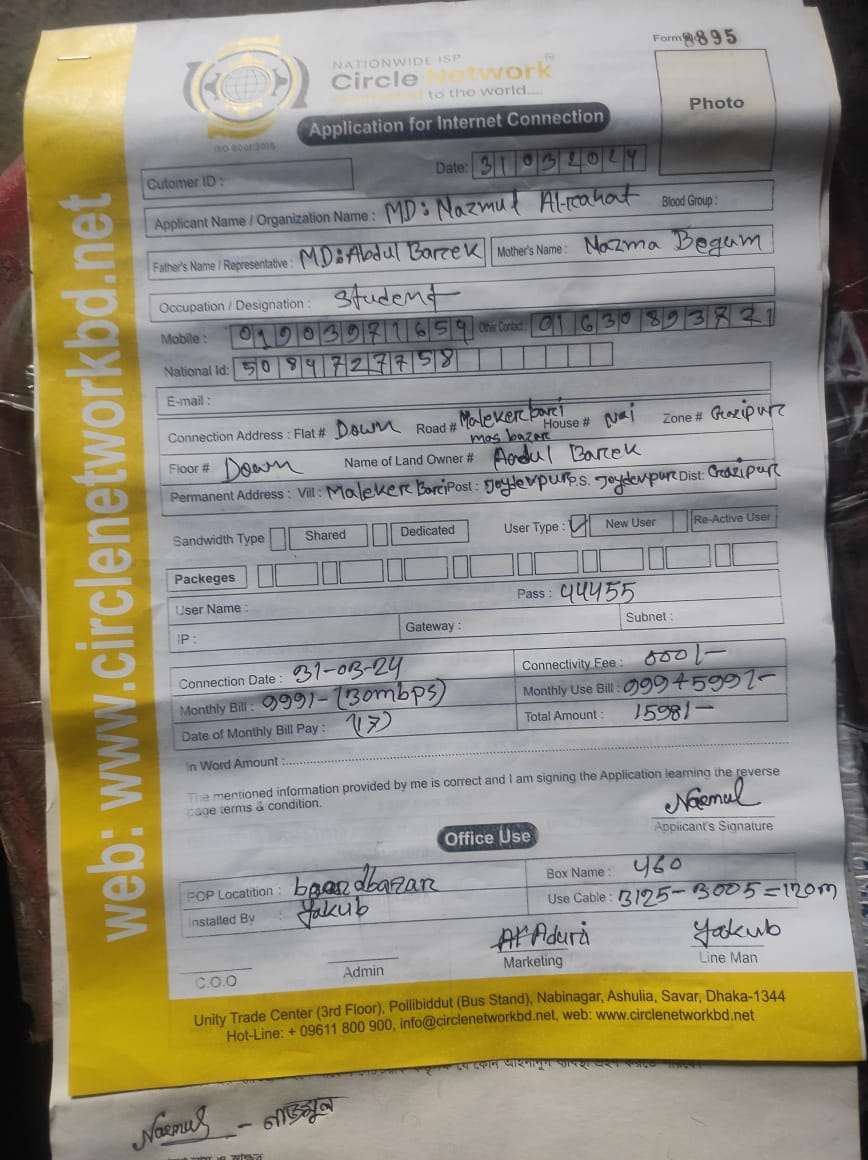 Form# 8895
NATIONWIDE ISP
Circle Network
to the world.....
ISO 9001:2015
Photo
Application for Internet Connection
Date: 31032024
Cutomer ID :
Applicant Name / Organization Name : MD: Nazmul Al-rahat Blood Group :
Father's Name / Representative : MD: Abdul Barek Mother's Name : Nazma Begum
Occupation / Designation : Student
Mobile : 01903971659 Other Contact : 01630893771
National Id: 5084727758
E-mail :
Connection Address : Flat # Down Road # Maleker bari House # Nai Zone # Gazipur
mas bazar
Floor # Down Name of Land Owner # Abdul Barek
Permanent Address : Vill : Maleker Bari Post : Joydevpur P.S. Joydevpur Dist: Gazipur
Bandwidth Type Shared Dedicated User Type : New User Re-Active User
Packeges
User Name : Pass : 44455
IP : Gateway : Subnet :
Connection Date : 31-03-24 Connectivity Fee : 000/-
Monthly Bill : 999/- (30mbps) Monthly Use Bill : 999+599/-
Date of Monthly Bill Pay : (17) Total Amount : 1598/-
In Word Amount :
The mentioned information provided by me is correct and I am signing the Application learning the reverse
page terms & condition.
Nazmul
Applicant's Signature
Office Use
POP Locatition : Box Name : 460
Installed By : Yakub Use Cable : 3125-3005=120m
Yakub
C.O.O Admin Marketing Line Man
Unity Trade Center (3rd Floor), Pollibiddut (Bus Stand), Nabinagar, Ashulia, Savar, Dhaka-1344
Hot-Line: + 09611 800 900, info@circlenetworkbd.net, web: www.circlenetworkbd.net
web: www.circlenetworkbd.net
Nazmul - নাজমুল